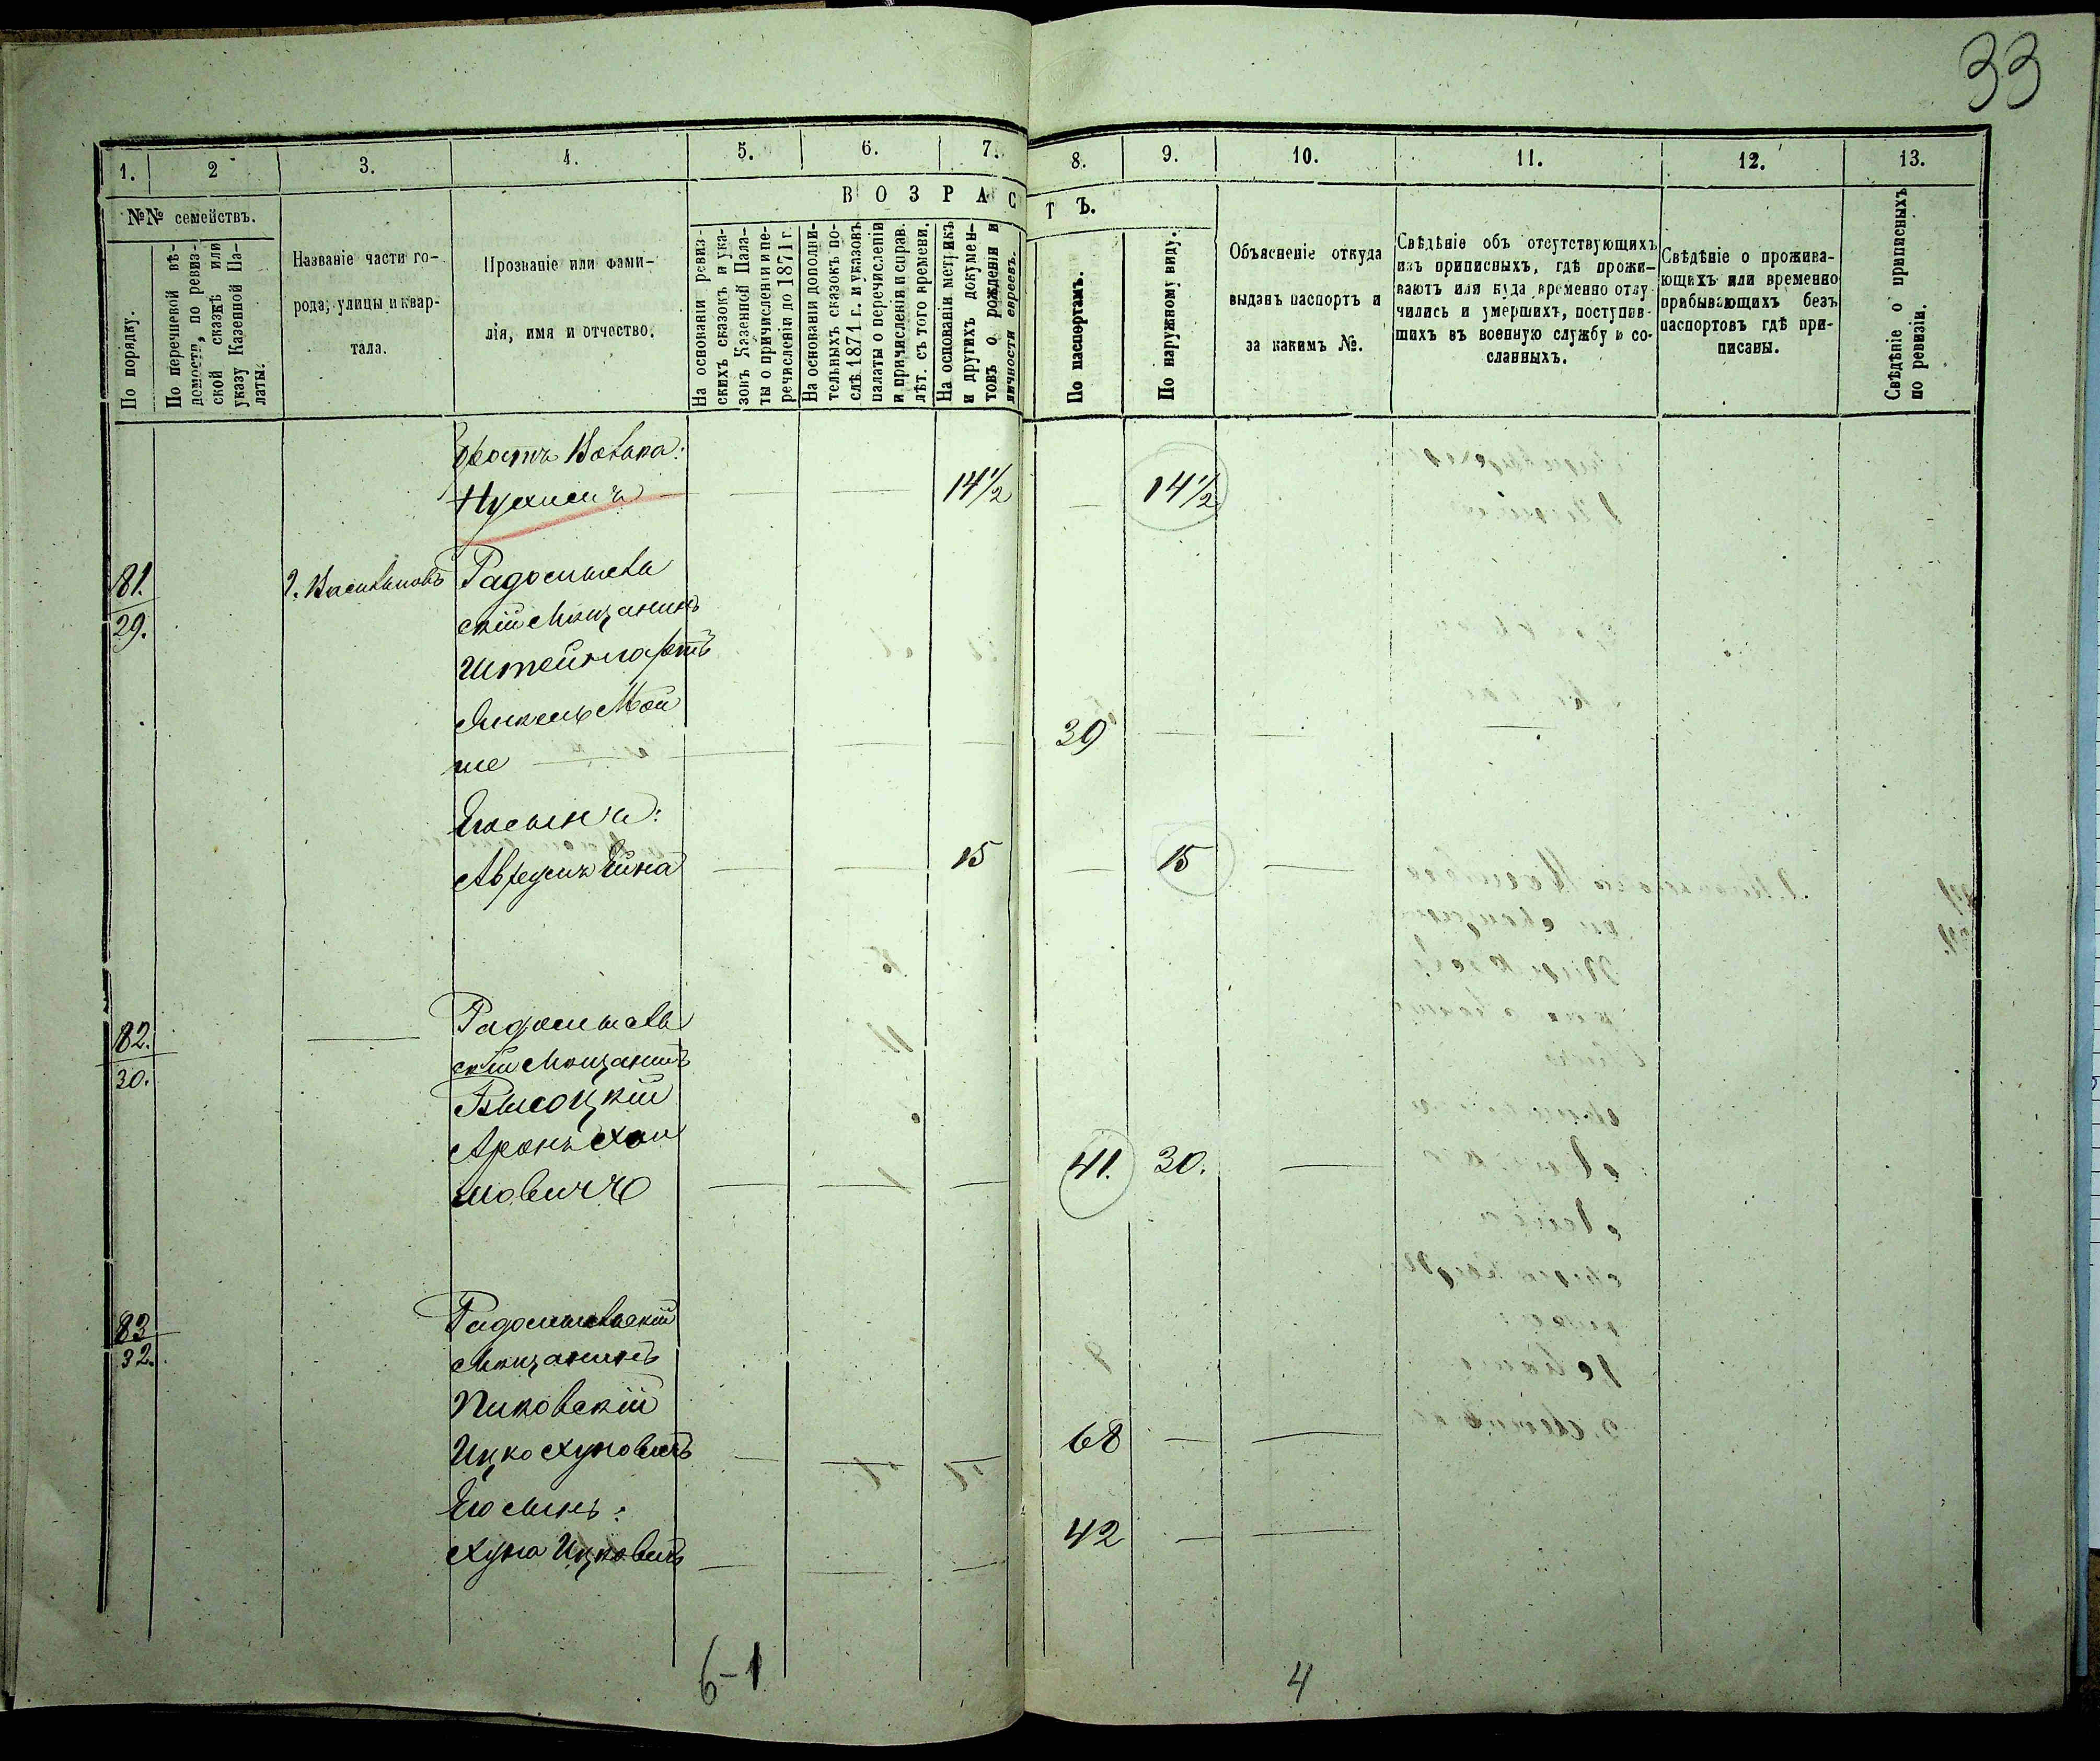 33
1. 2 3. 4. 5. 6. 7. 8. 9. 10. 11. 12. 13.
№№ семействъ.
По порядку.
По перечневой вѣ-
домости, по ревиз-
ской сказкѣ или
указу Казенной Па-
латы.
Названіе части го-
рода, улицы и квар-
тала.
Прозваніе или фами-
лія, имя и отчество.
ВОЗРАСТЪ.
На основаніи ревиз-
скихъ сказокъ и ука-
зовъ Казенной Пала-
ты о причисленіи и пе-
речисленіи до 1871 г.
На основаніи дополни-
тельныхъ сказокъ по-
слѣ 1871 г. и указовъ
палаты о перечисленіи
и причисленіи и справ.
лѣт. съ того времени.
На основаніи метрикъ
и другихъ докумен-
товъ о рожденіи и
личности евреевъ.
По паспортамъ.
По наружному виду.
Объясненіе откуда
выданъ паспортъ и
за какимъ №.
Свѣдѣніе объ отсутствующихъ
изъ приписныхъ, гдѣ прожи-
ваютъ или куда временно отлу-
чились и умершихъ, поступив-
шихъ въ военную службу и со-
сланныхъ.
Свѣдѣніе о прожива-
ющихъ или временно
прибывающихъ безъ
паспортовъ гдѣ при-
писаны.
Свѣдѣніе о приписныхъ
по ревизіи.
14½ 14½
81. Радомысль
29. скій Мѣщанинъ
Янкель Мой
ше 39
Его сынъ:
15 15
82. Радомысль
30. скій Мѣщанинъ
Высоцкій
Аронъ Хаи
мовичъ 41. 30.
83 Радомысльскій
32. Мѣщанинъ
Пиковскій
Ицко Хуновичъ 68
Его сынъ:
Хуна Ицковичъ 42
6-1 4